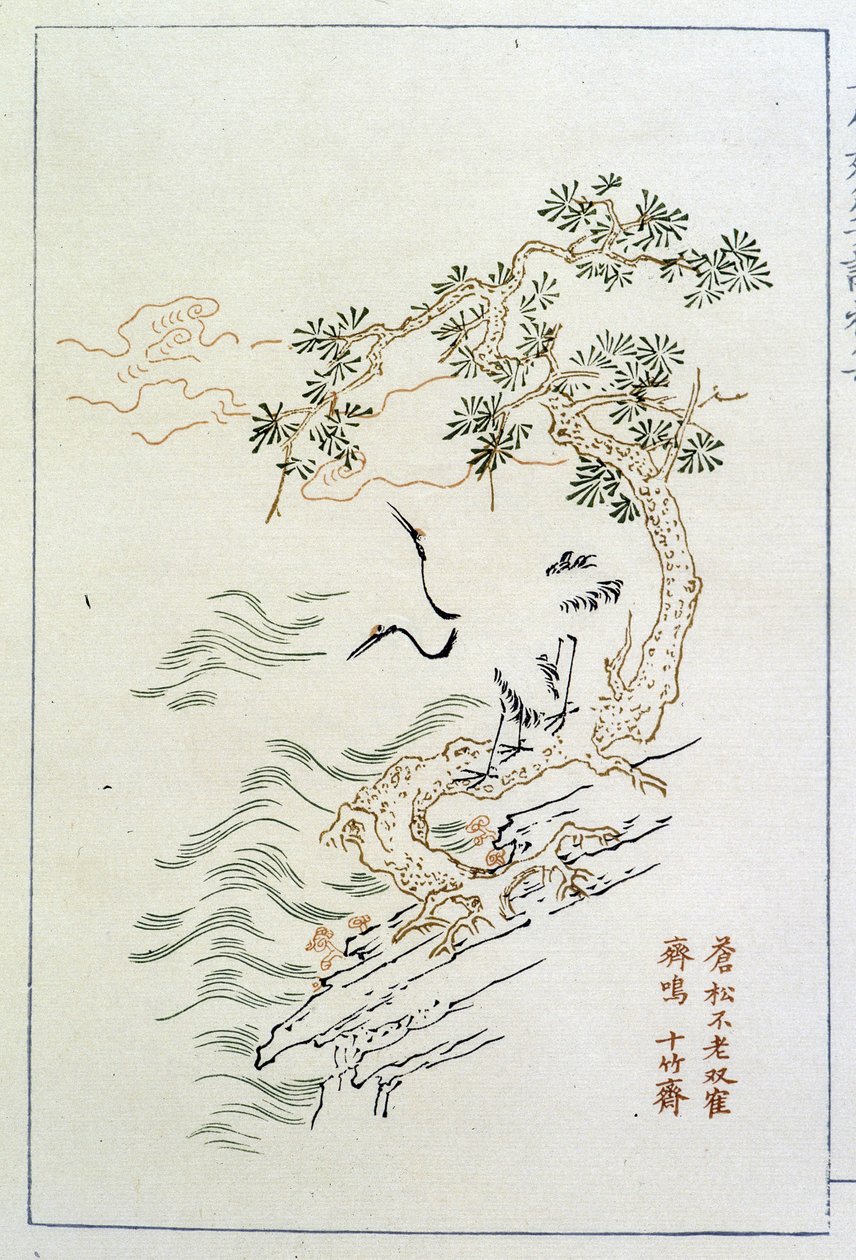 蒼松不老双寉
齊鳴 十竹齋